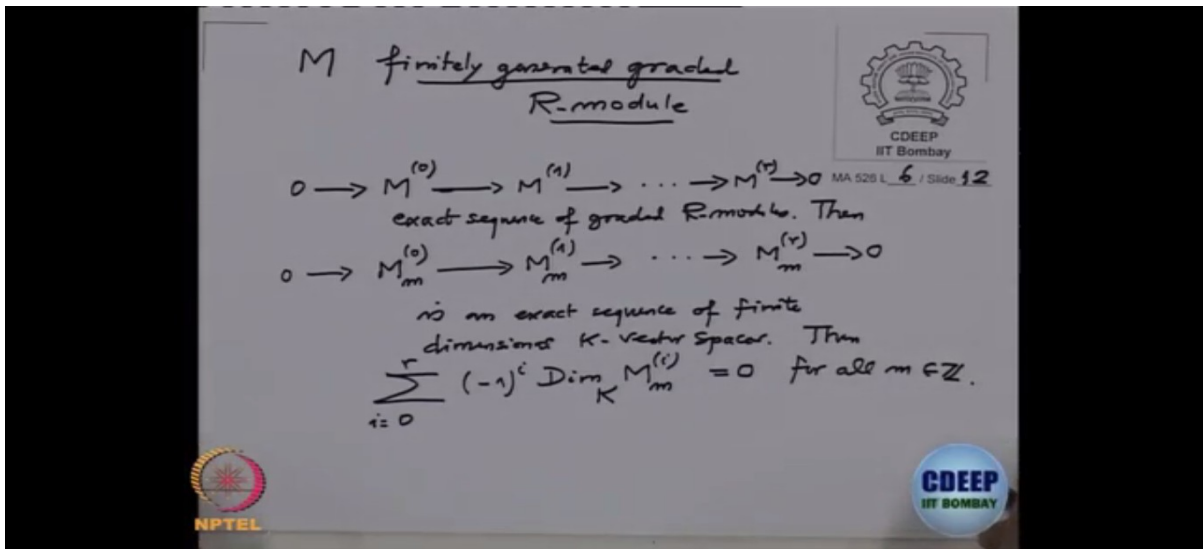 M finitely generated graded
R-module
CDEEP
IIT Bombay
0 → M^(0) → M^(1) → ··· → M^(r) → 0 MA 526 L 6 / Slide 12
exact sequence of graded R-modules. Then
0 → M_m^(0) → M_m^(1) → ··· → M_m^(r) → 0
is an exact sequence of finite
dimensional K-vector spaces. Then
∑_{i=0}^{r} (-1)^i Dim_K M_m^(i) = 0 for all m ∈ ℤ.
NPTEL
CDEEP
IIT BOMBAY